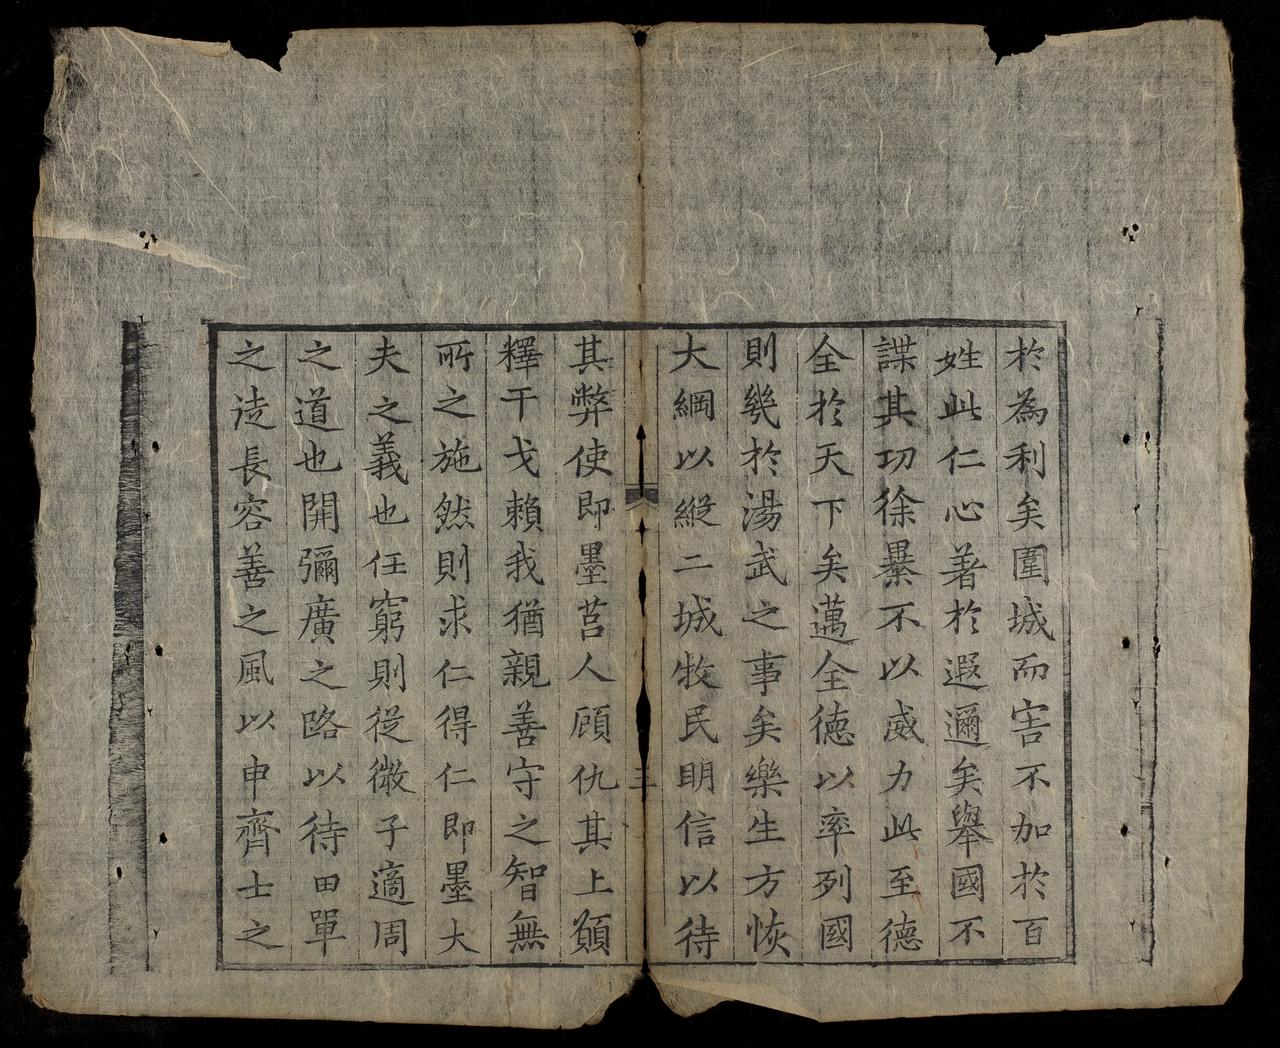 於為利矣圍城而害不加於百
姓此仁心著於遐邇矣舉國不
謀其功徐暴不以威力此至德
全於天下矣邁全德以率列國
則幾於湯武之事矣樂生方恢
大綱以縱二城牧民明信以待
三
其弊使即墨莒人顧仇其上願
釋干戈賴我猶親善守之智無
所之施然則求仁得仁即墨大
夫之義也任窮則從微子適周
之道也開彌廣之路以待田單
之徒長容善之風以申齊士之